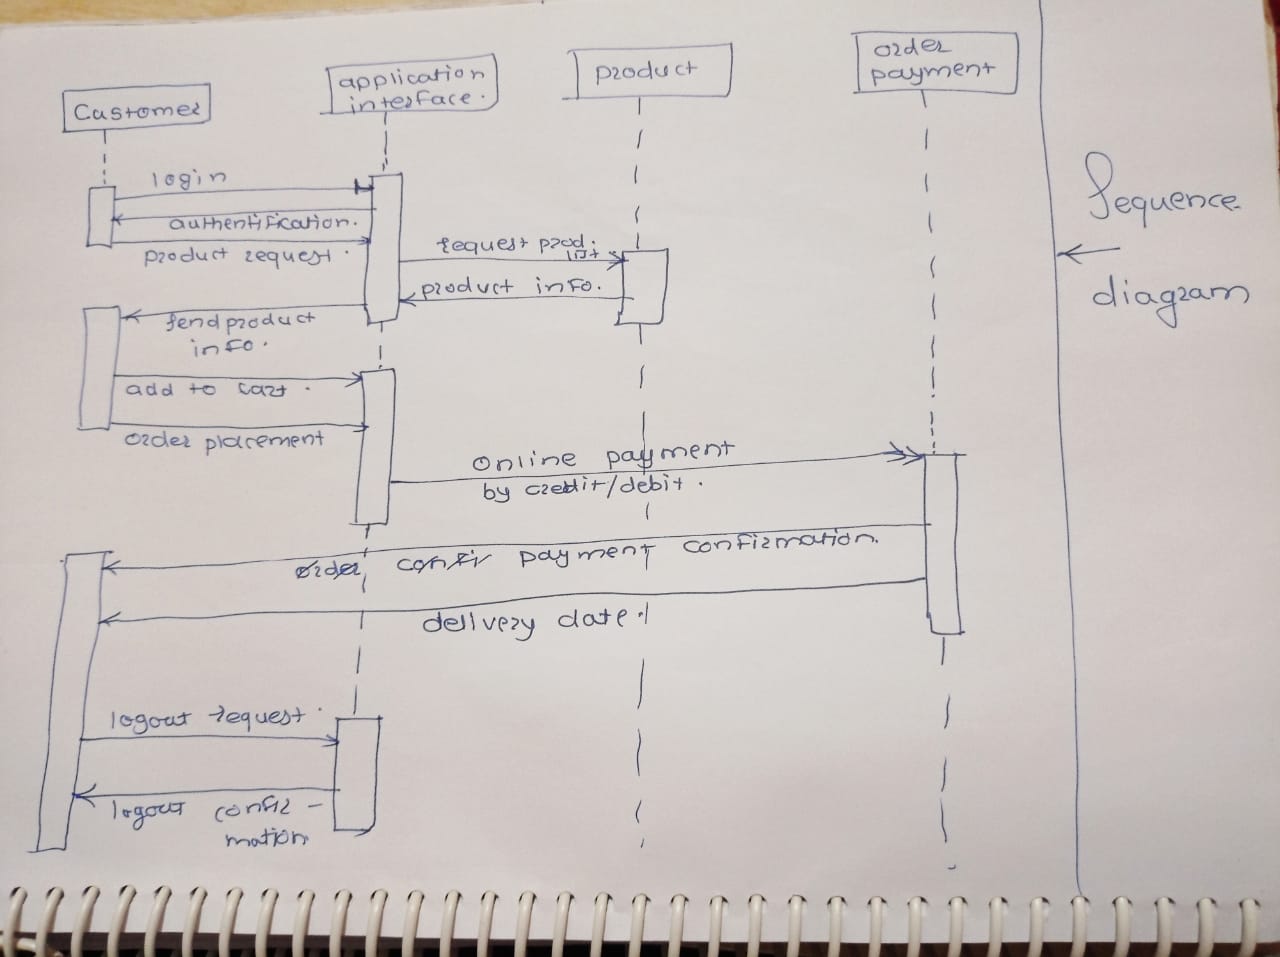 Customer
application
interface.
product
order
payment
Sequence
diagram
login
authentification.
product request.
request prod.
list
product info.
send product
info.
add to cart.
order placement
Online payment
by credit/debit.
order confir payment confirmation.
delivery date.
logout request.
logout confir-
mation